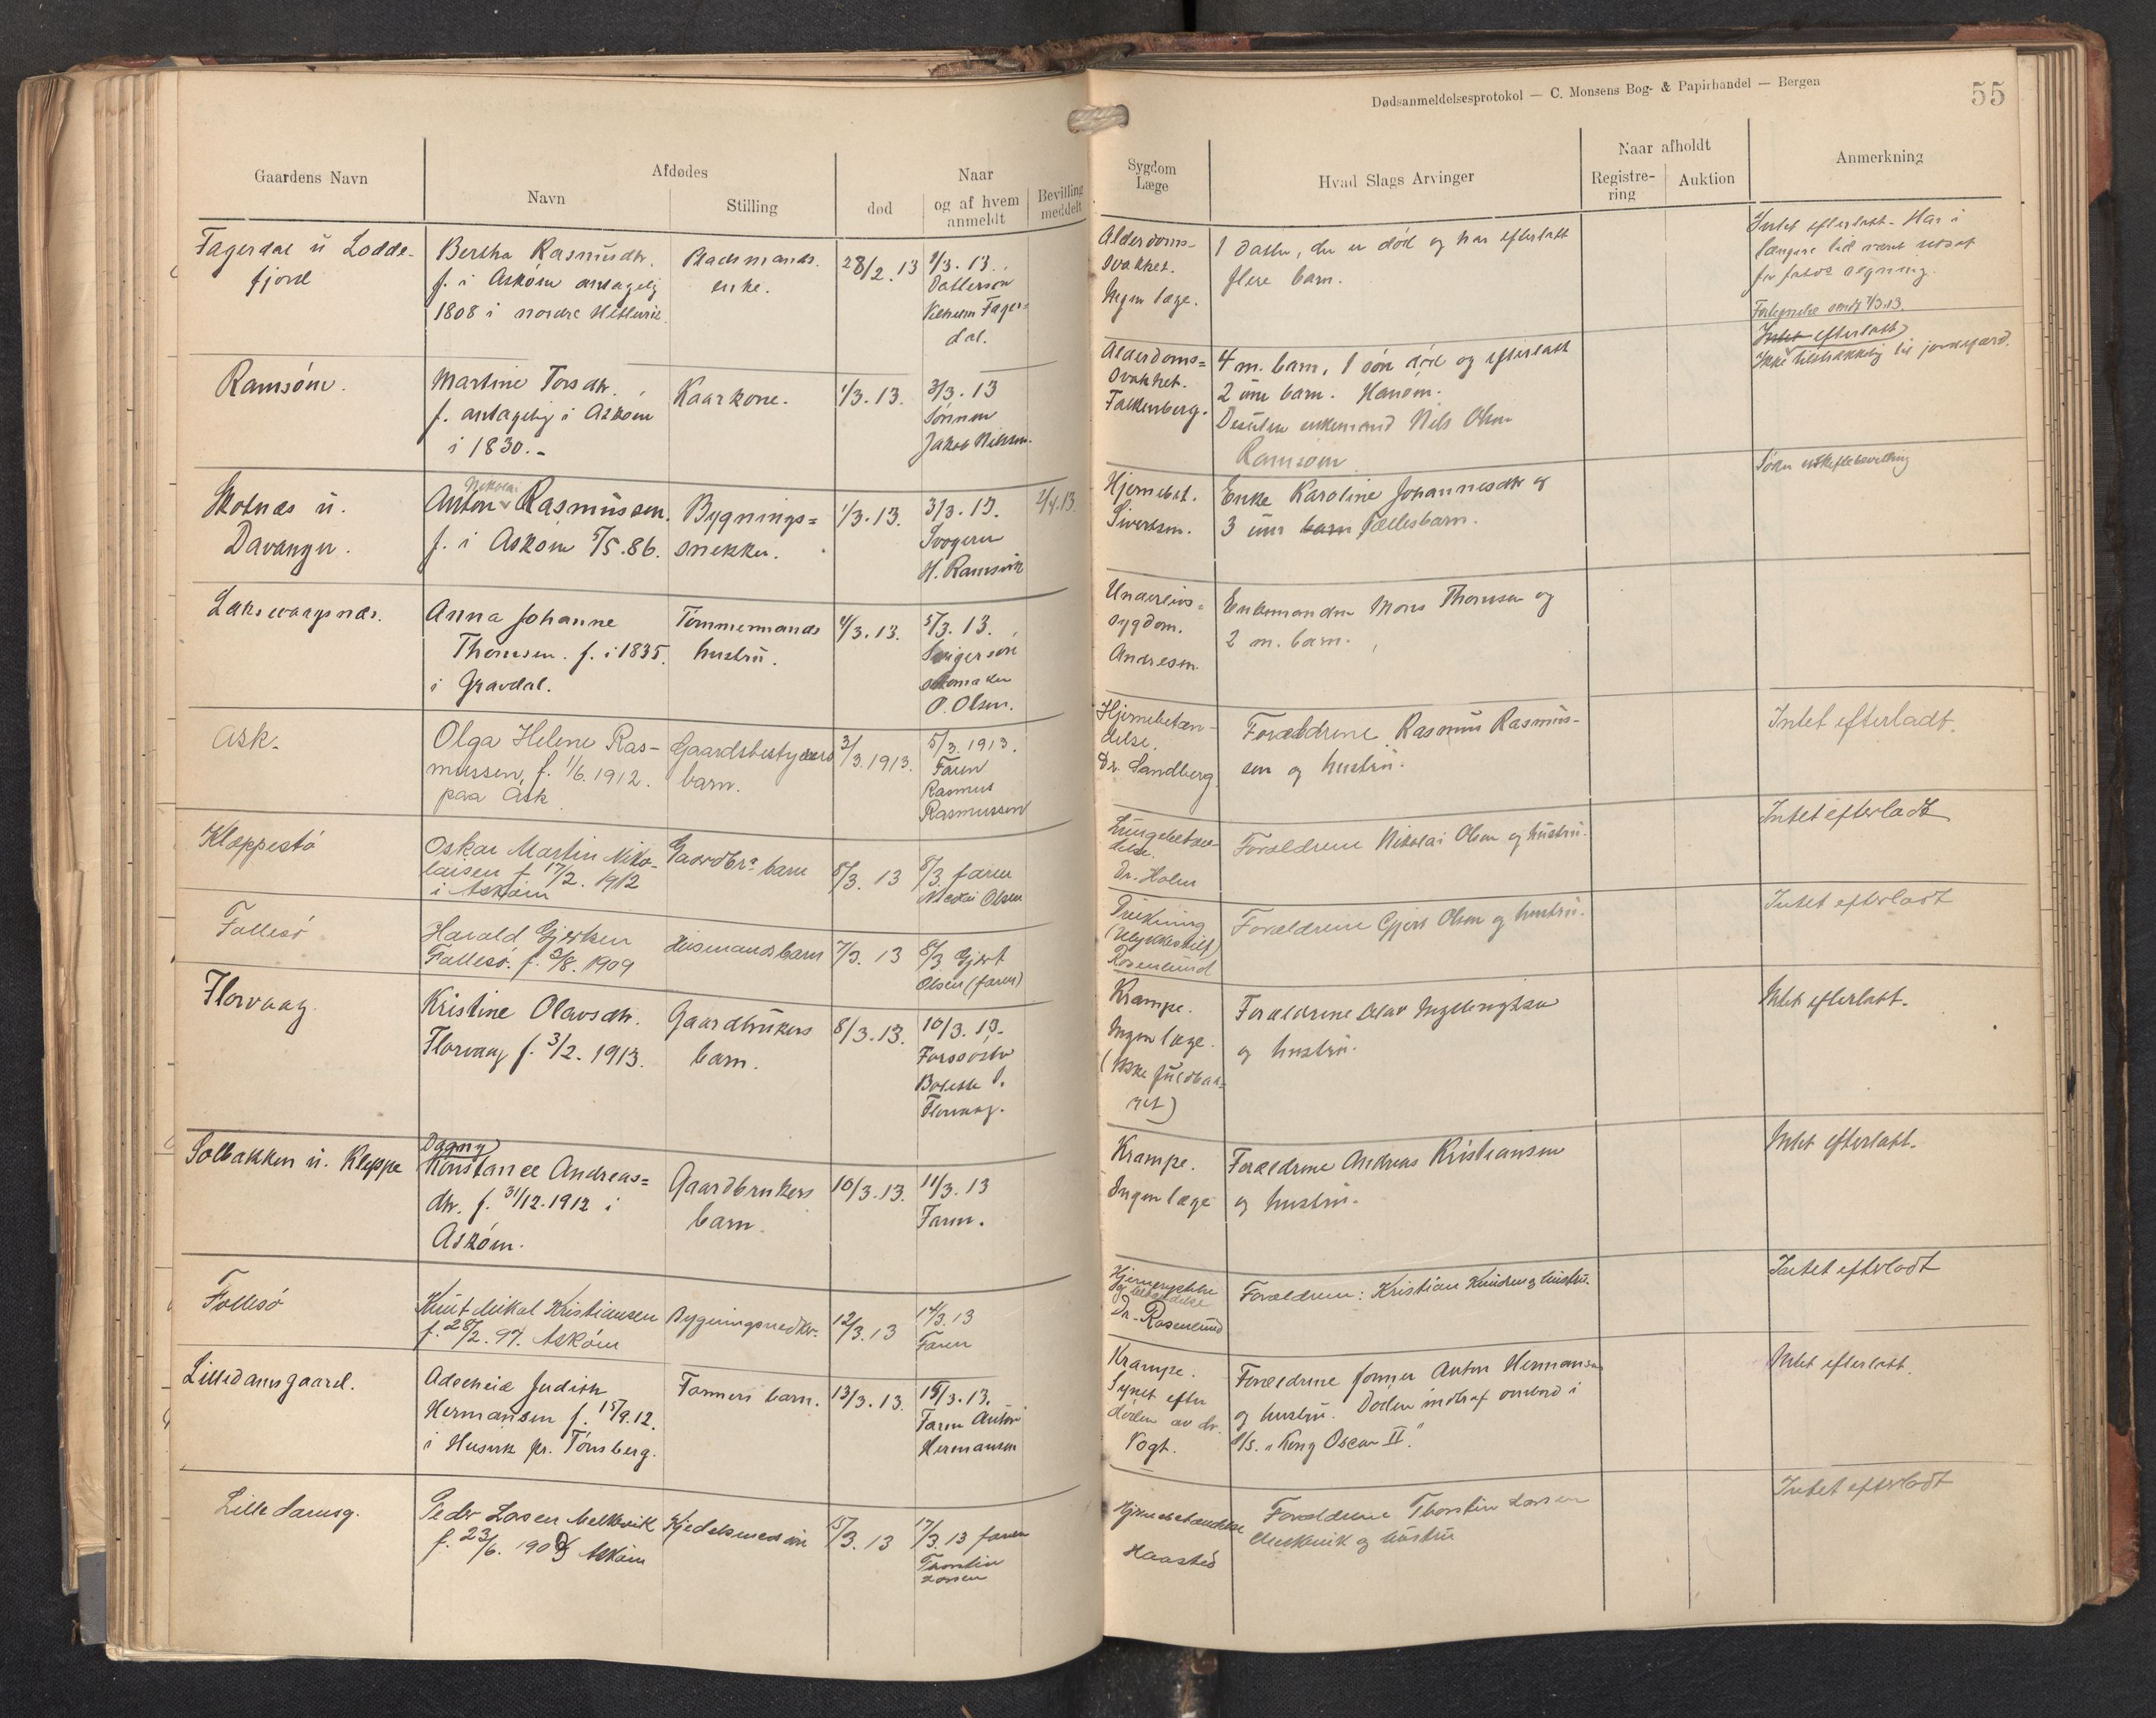 Dødsanmeldelsesprotokol — C. Monsens Bog- & Papirhandel — Bergen
55
Gaardens Navn
Afdødes
Navn
Stilling
død
Naar
og af hvem
anmeldt
Bevilling
meddelt
Sygdom
Læge
Hvad Slags Arvinger
Naar afholdt
Registre-
ring
Auktion
Anmerkning
Fagerdal u Lodde-
fjord
Bertha Rasmusdtr.
f. i Askøin antagelig
1808 i nordre
Pladsmands
enke.
28/2.13
1/3.13.
Dattersøn
Vilhelm Fager-
dal.
Alderdoms-
svakhet.
Ingen læge.
1 datter, der er død og har efterlatt
flere barn.
Intet efterlatt. Har i
længere tid været
Ramsøin.
Martine Torsdtr.
f. antagelig i Askøin
i 1830.-
Kaarkone.
1/3.13.
3/3.13
Sønnen
Jakob Nilsen.
Alderdoms=
svakhet.
Falkenberg.
4 m. barn, 1 søn død og efterlatt
2 um barn.
Desuten enkemand Nils Olsen
Ramsøin
Intet efterlatt
Ikke tilstrækkelig til jordefærd.
Skotnæs u.
Davanger.
Anton Nikolai Rasmussen.
f. i Askøin 5/5.86.
Bygnings=
snekker.
1/3.13.
3/3.13.
Svogeren
H. Ramsvik
2/4.13
Hjernebet.
Sivertsen.
Enke Karoline Johannesdtr og
3 um barn fællesbarn.
Søker uskiftebevilling
Laksevaagsnæs.
Anna Johanne
Thomsen. f. i 1835.
i Gravdal.
Tømmermands
hustru.
4/3.13.
5/3.13.
Svigersøn
skomaker
O. Olsen.
Underlivs=
sygdom.
Andresen.
Enkemanden Mons Thomsen og
2 m. barn.
Ask.
Olga Helene Ras-
mussen, f. 1/6.1912.
paa Ask
Gaardsbestyrers
barn.
3/3.1913.
5/3.1913.
Faren
Rasmus
Rasmussen
Hjernebetæn-
delse.
Dr. Sandberg
Forældrene Rasmus Rasmus-
sen og hustru.
Intet efterladt.
Kleppestø
Oskar Martin Niko-
laisen f. 17/2.1912
i Askøin
Gaardbr. barn
8/3.13
8/3 faren
Nicolai Olsen
Lungebetæn-
delse.
Dr. Holm
Forældrene Nikolai Olsen og hustru.
Intet efterladt
Follesø
Harald Gjertsen
Follesø. f. 2/8.1909
Husmandsbarn
7/3.13
8/3 Gjert
Olsen (faren)
(Ulykkestilf)
Rosenlund
Forældrene Gjert Olsen og hustru.
Intet efterladt
Florvaag
Kristine Olavsdtr.
Florvaag f. 3/2.1913.
Gaardbrukers
barn.
8/3.13.
10/3.13.
Farssøster
Florvaag.
Krampe.
Ingen læge.
(Ikke fuldbaa-
ret)
Forældrene Olav
og hustru.
Intet efterlatt.
Solbakken u. Kleppe
Dagny
Konstance Andreas=
dtr. f. 31/12.1912 i
Askøin.
Gaardbrukers
barn.
10/3.13.
11/3.13
Faren.
Krampe.
Ingen læge
Forældrene Andreas Kristiansen
og hustru.
Intet efterlatt.
Follesø
Knut Mikal Kristiansen
f. 28/2.97. Askøin
Bygningssnedker.
12/3.13
14/3.13
Faren
Dr. Rosenlund
Forældrene: Kristian Knudsen og hustru.
Intet efterladt
Lilledamsgaard.
Adelheid Judith
Hermansen f. 15/9.12.
i Husvik pr. Tønsberg.
Formers barn.
13/3.13.
15/3.13.
Faren Anton
Hermansen
Krampe.
Synet efter
døden av dr.
Vogt.
Forældrene former Anton Hermansen
og hustru. Døden indtraf ombord i
D/S. „Kong Oscar II."
Intet efterlatt.
Lille damsg.
Peder Larsen Melkevik
f. 23/6. 190 Askøin
Kjedelsmed
15/3.13
17/3.13 faren
Torstein
Larsen
Hjernebetændelse
Haasted
Forældrene Thorstein Larsen
Melkevik og hustru
Intet efterladt